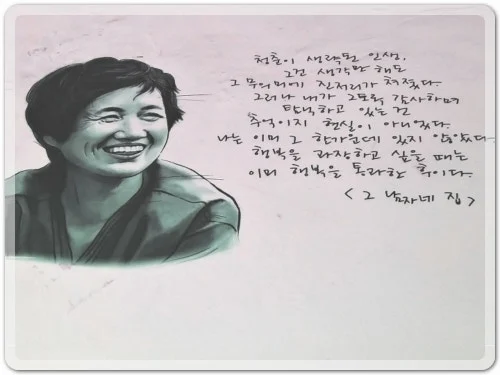 청춘이 생략된 인생,
그건 생각만 해도
그 무의미에 진저리가 쳐졌다.
그러나 내가 그토록 감사하며
탐닉하고 있는 건
추억이지 현실이 아니었다.
나는 이미 그 한가운데 있지 않았다.
행복을 과장하고 싶을 때는
이미 행복을 통과한 후이다.
< 그 남자네 집 >